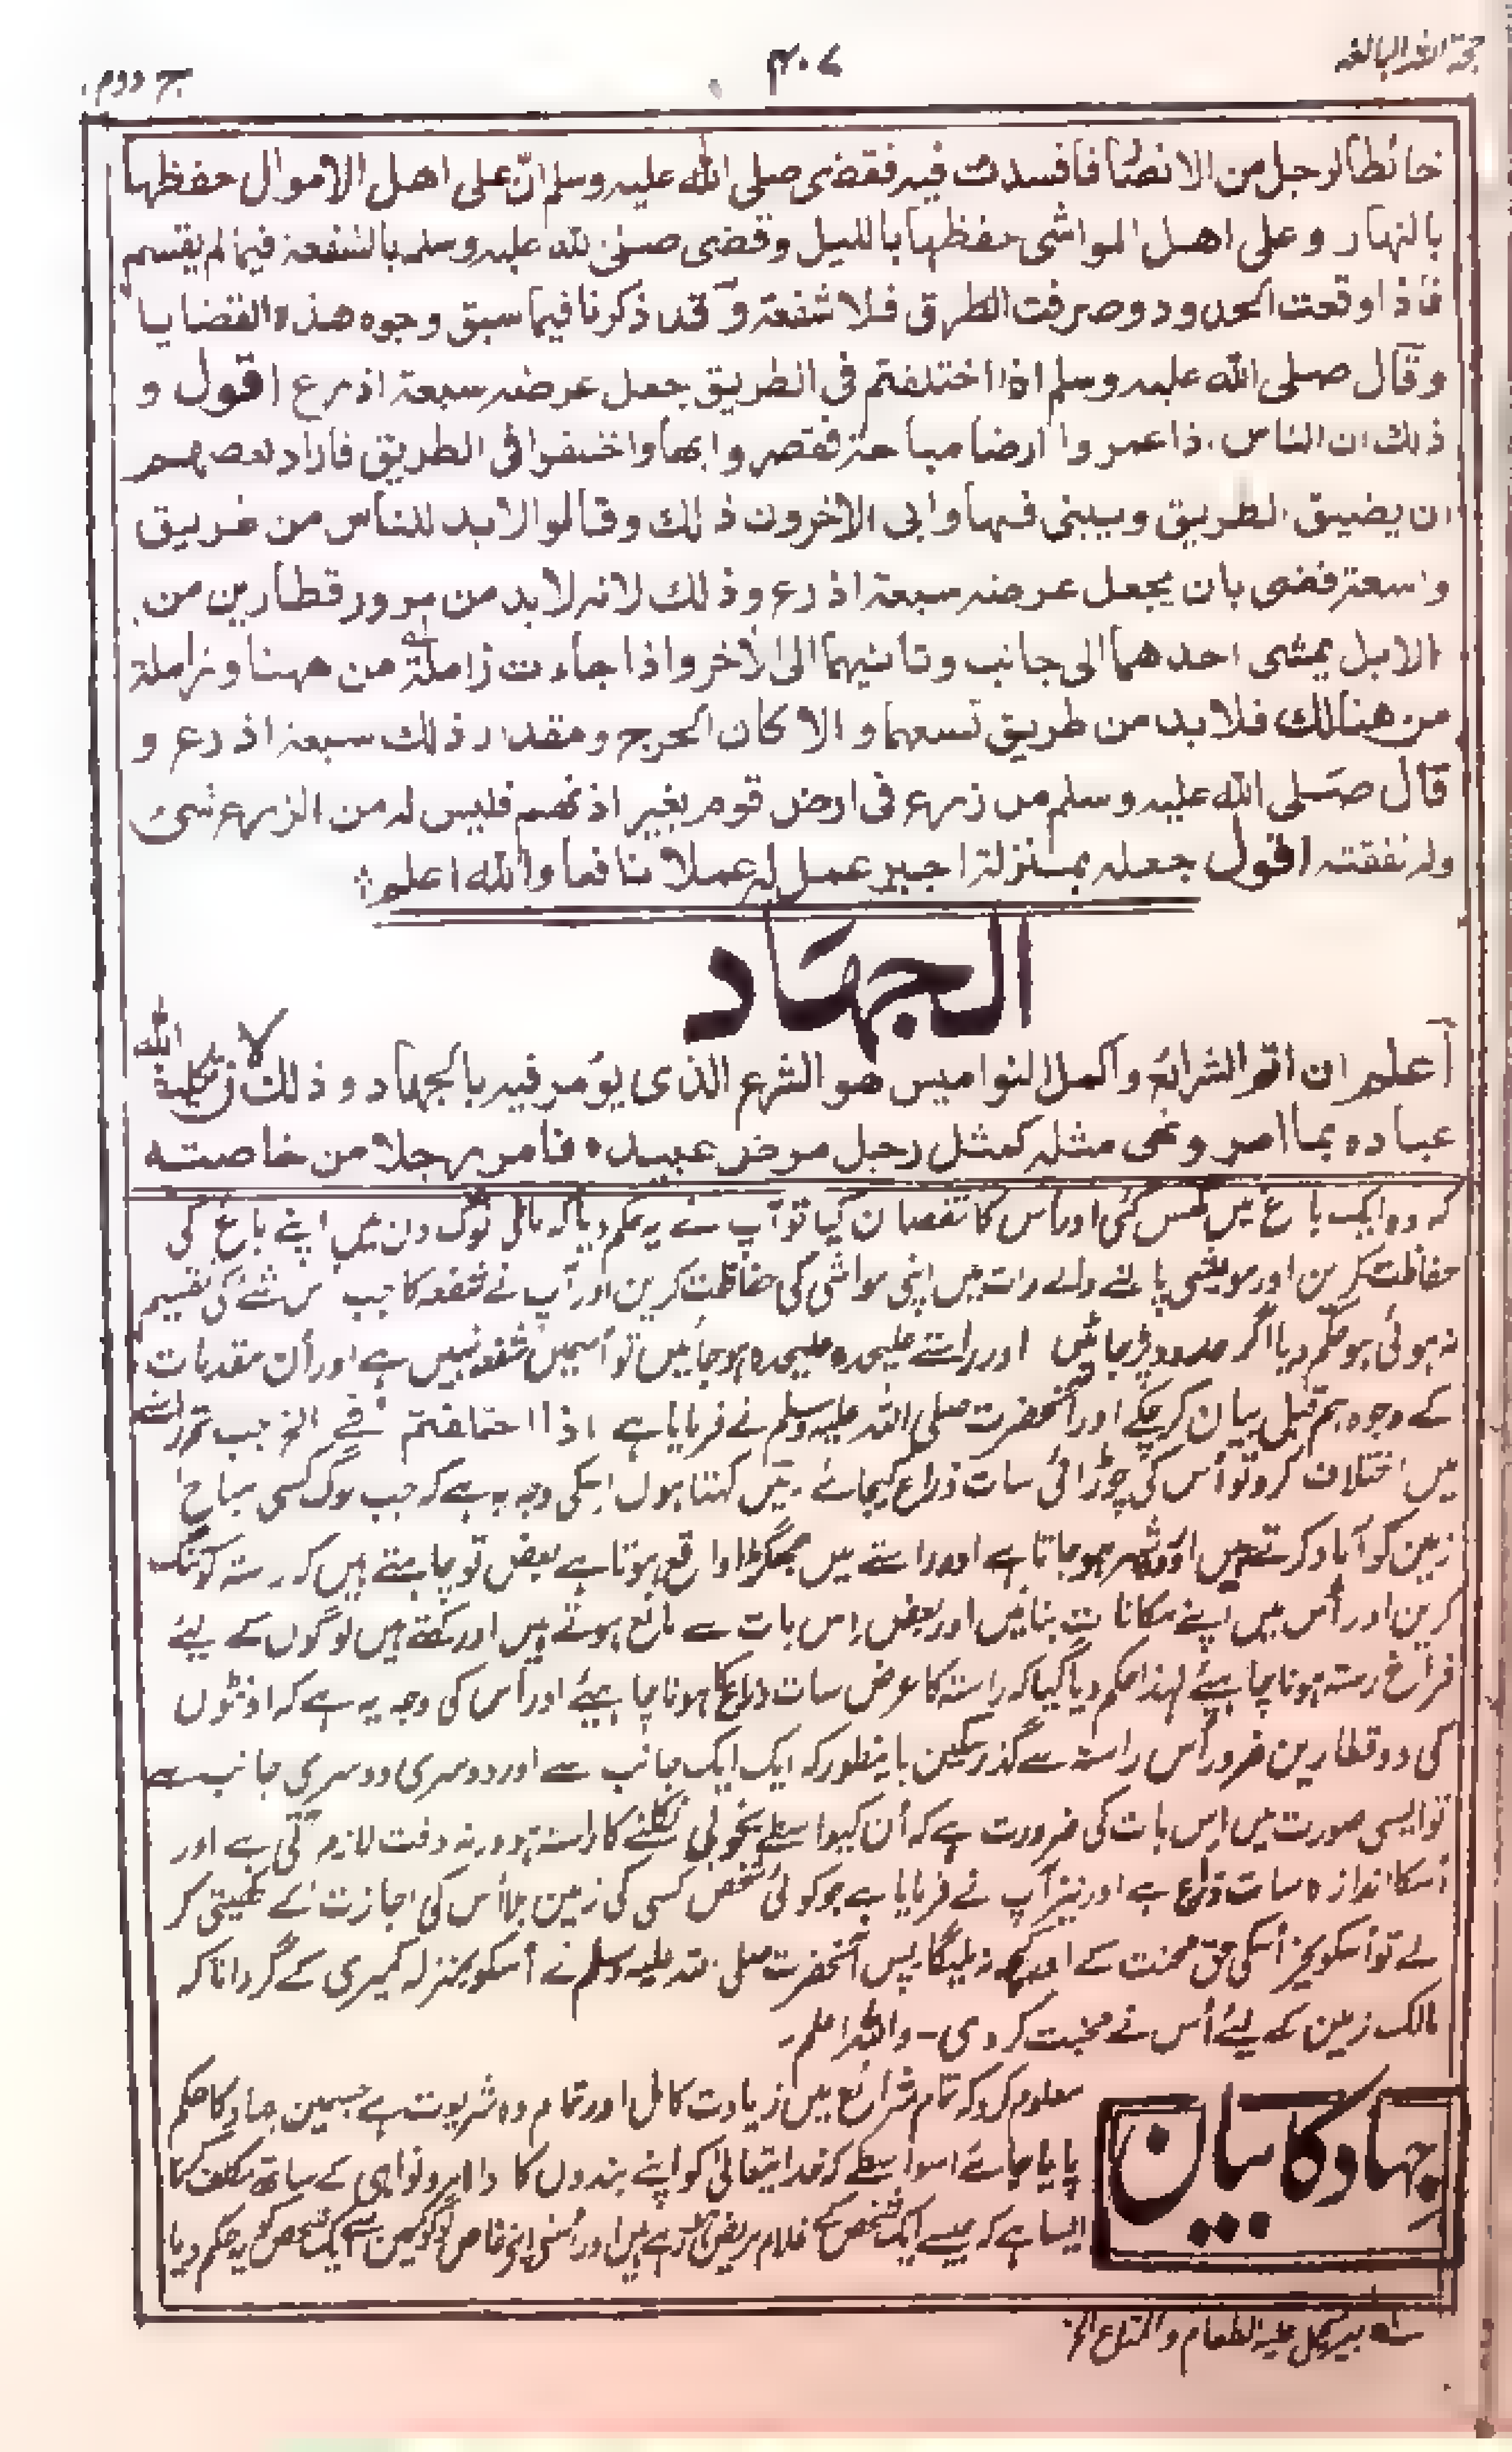 حجۃ اللہ البالغہ ۴۰۷ ج دوم
حائطا لرجل من الانصار فافسدت فیہ فقضی صلی اللہ علیہ وسلم ان علی اھل الاموال حفظھا
بالنھار وعلی اھل المواشی حفظھا باللیل وقضی صلی اللہ علیہ وسلم بالشفعۃ فیما لم یقسم
فاذا وقعت الحدود وصرفت الطرق فلا شفعۃ وقد ذکرنا فیما سبق وجوہ ھذہ القضایا
وقال صلی اللہ علیہ وسلم اذا اختلفتم فی الطریق جعل عرضہ سبعۃ اذرع اقول و
ذلک ان الناس اذا عمروا ارضا مباحۃ فقصروا بھا واختلفوا فی الطریق فاراد بعضھم
ان یضیق الطریق ویبنی فیھا وابی الاخرون ذلک وقالوا لا بد للناس من طریق
واسعۃ قضی بان یجعل عرضہ سبعۃ اذرع وذلک لانہ لا بد من مرور قطارین من
الابل یمشی احدھما الی جانب وثانیھما الی الاخر واذا جاءت زاملۃ من ھھنا وزاملۃ
من ھنالک فلا بد من طریق تسعھما والا کان الحرج ومقدار ذلک سبعۃ اذرع و
قال صلی اللہ علیہ وسلم من زرع فی ارض قوم بغیر اذنھم فلیس لہ من الزرع شئ
ولہ نفقتہ اقول جعلہ بمنزلۃ اجیر عمل لہ عملا نافعا واللہ اعلم
الجھاد
اعلم ان اتم الشرائع واکمل النوامیس ھو الشرع الذی یؤمر فیہ بالجھاد وذلک لان تکلیف اللہ
عبادہ بما امر ونھی مثلہ کمثل رجل مرض عبیدہ فامر رجلا من خاصتہ
کہ وہ ایک باغ میں گھس گئی اور اس کا نقصان کیا تو آپ نے یہ حکم دیا کہ مالی لوگ دن میں اپنے باغ کی
حفاظت کریں اور مویشی پالنے والے رات میں اپنی مواشی کی حفاظت کرین اور آپ نے شفعہ کا جب اس شے کی تقسیم
نہ ہوئی ہو حکم دیا اگر حدود پڑجائیں اور راستے علیحدہ علیحدہ ہوجائیں تو اسمیں شفعہ نہیں ہے اور اُن مقدمات
کے وجوہ ہم قبل بیان کرچکے اور آنحضرت صلی اللہ علیہ وسلم نے فرمایا ہے اذا اختلفتم فی الخ جب تم راستہ
میں اختلاف کرو تو اُس کی چوڑائی سات ذراع کیجائے۔ میں کہتا ہوں اسکی وجہ یہ ہے کہ جب لوگ کسی مباح
زمین کو آباد کرتے ہیں اور شہر ہوجاتا ہے اور راستے میں جھگڑا واقع ہوتا ہے بعض تو چاہتے ہیں کہ رستہ کو تنگ
کریں اور اُس میں اپنے مکانات بنائیں اور بعض اس بات سے مانع ہوتے ہیں اور کہتے ہیں لوگوں کے لیئے
فراخ رستہ ہونا چاہیئے لہذا حکم دیا گیا کہ راستہ کا عرض سات ذراع کا ہونا چاہیئے اور اُس کی وجہ یہ ہے کہ اونٹوں
کی دو قطارین ضرور اُس راستہ سے گذر سکین باینطور کہ ایک ایک جانب سے اور دوسری دوسری جانب سے
تو ایسی صورت میں اِس بات کی ضرورت ہے کہ اُن کیواسطے بخوبی نکلنے کا راستہ ہو ورنہ دقت لازم آتی ہے اور
اُسکا اندازہ سات ذراع ہے اور نیز آپ نے فرمایا ہے جو کوئی شخص کسی کی زمین بلا اُس کی اجازت کے کھیتی کر
لے تو اُسکو بجز اُسکی حق محنت کے اور کچھ نہ ملیگا۔ پس آنحضرت صلی اللہ علیہ وسلم نے اُسکو بمنزلہ کمیری کے گردانا کہ
مالک زمین کے لیئے اُس نے محنت کردی۔ واللہ اعلم۔
جہاد کا بیان
معلوم کرو کہ تمام شرائع میں زیادت کامل اور تمام وہ شریعت ہے جسمین جہاد کا حکم
پایا جائے اسواسطے کہ خدا تعالیٰ کو اپنے بندوں کا اوامر و نواہی کے ساتھ مکلف کرنا
ایسا ہے کہ جیسے ایک شخص کے غلام مریض ہیں اور اُسنے اپنی خاص لوگوں میں سے ایک شخص کو یہ حکم دیا
یحمل علیہ الطعام والمتاع الخ